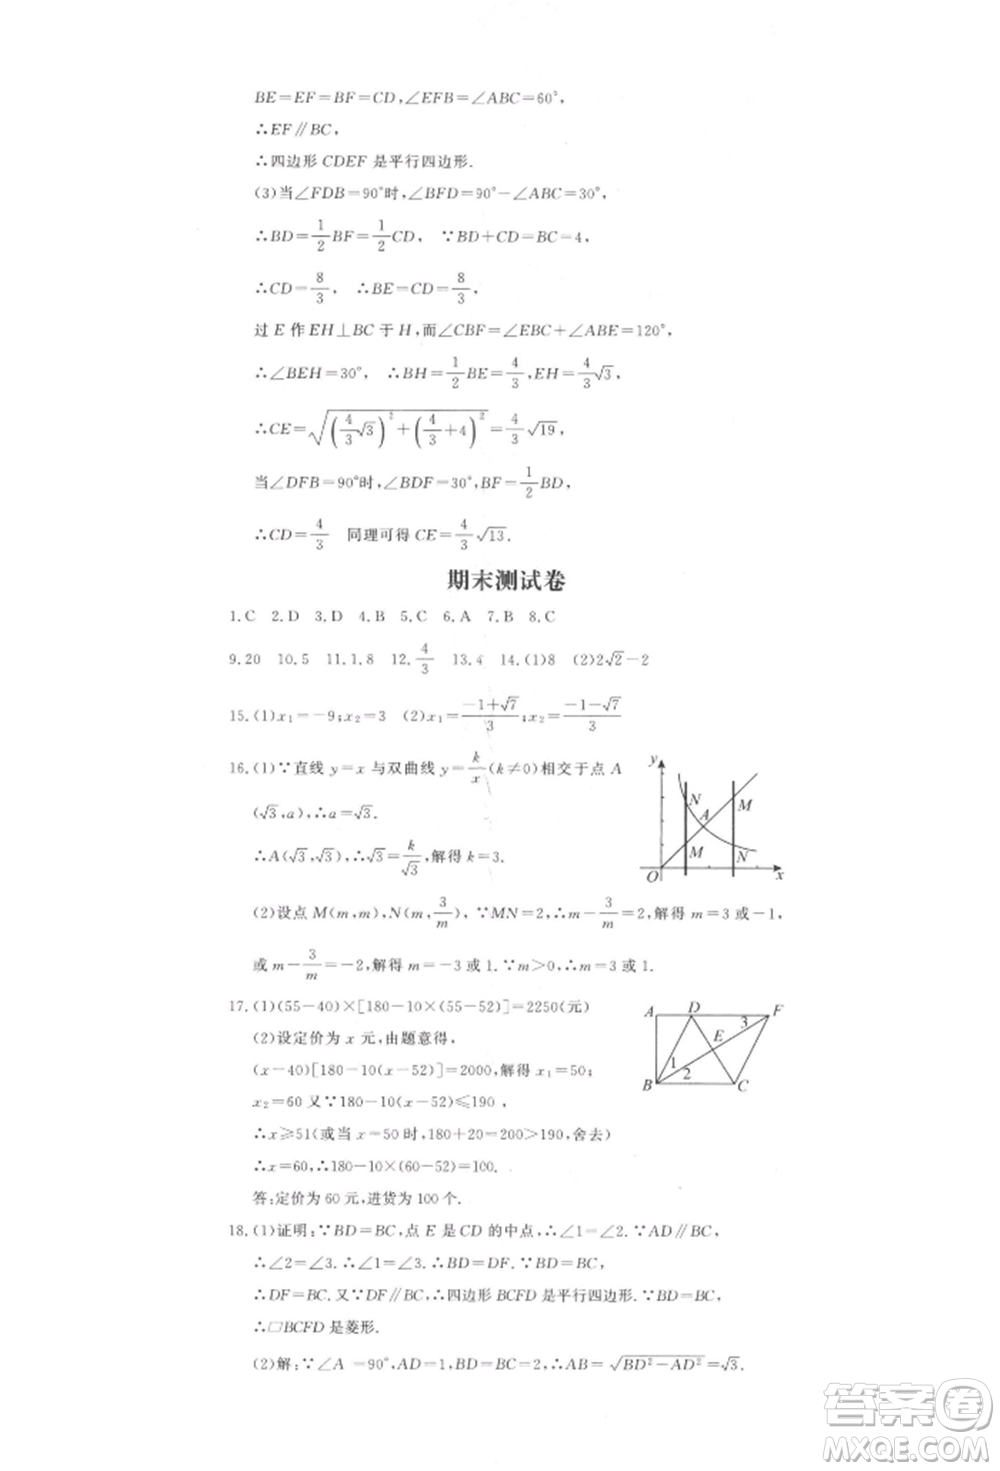 BE=EF=BF=CD,∠EFB=∠ABC=60°,
∴EF∥BC,
∴四边形 CDEF 是平行四边形.
(3)当∠FDB=90°时,∠BFD=90°-∠ABC=30°,
∴BD=1/2 BF=1/2 CD, ∵BD+CD=BC=4,
∴CD=8/3, ∴BE=CD=8/3,
过 E 作 EH⊥BC 于 H,而∠CBF=∠EBC+∠ABE=120°,
∴∠BEH=30°, ∴BH=1/2 BE=4/3,EH=4/3√3,
∴CE=√((4/3√3)²+(4/3+4)²)=4/3√19,
当∠DFB=90°时,∠BDF=30°,BF=1/2 BD,
∴CD=4/3 同理可得 CE=4/3√13.
期末测试卷
1.C 2.D 3.D 4.B 5.C 6.A 7.B 8.C
9.20 10.5 11.1,8 12.4/3 13.4 14.(1)8 (2)2√2-2
15.(1)x₁=-9;x₂=3 (2)x₁=(-1+√7)/3;x₂=(-1-√7)/3
16.(1)∵直线 y=x 与双曲线 y=k/x(k≠0)相交于点 A
(√3,a),∴a=√3.
∴A(√3,√3),∴√3=k/√3,解得 k=3.
(2)设点 M(m,m),N(m,3/m), ∵MN=2,∴m-3/m=2,解得 m=3 或-1,
或 m-3/m=-2,解得 m=-3 或 1.∵m>0,∴m=3 或 1.
y
N
M
A
M
N
O
x
17.(1)(55-40)×[180-10×(55-52)]=2250(元)
(2)设定价为 x 元,由题意得,
(x-40)[180-10(x-52)]=2000,解得 x₁=50;
x₂=60 又∵180-10(x-52)≤190,
∴x≥51(或当 x=50 时,180+20=200>190,舍去)
∴x=60,∴180-10×(60-52)=100.
答:定价为 60 元,进货为 100 个.
A
D
F
3
E
1
2
B
C
18.(1)证明:∵BD=BC,点 E 是 CD 的中点,∴∠1=∠2.∵AD∥BC,
∴∠2=∠3.∴∠1=∠3.∴BD=DF.∵BD=BC,
∴DF=BC.又∵DF∥BC,∴四边形 BCFD 是平行四边形.∵BD=BC,
∴□BCFD 是菱形.
(2)解:∵∠A=90°,AD=1,BD=BC=2,∴AB=√(BD²-AD²)=√3.
答案圈
MXQE.COM